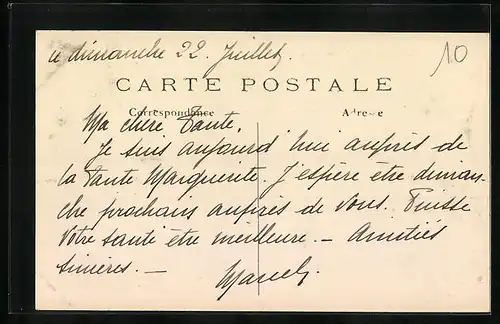 le dimanche 22 Juillet.
10
CARTE POSTALE
Correspondance
Adresse
Ma chère Tante,
Je suis aujourd'hui auprès de
la Tante Marguerite. J'espère être diman-
che prochain auprès de vous. Puisse
votre santé être meilleure. — Amitiés
sincères. —
Marcel